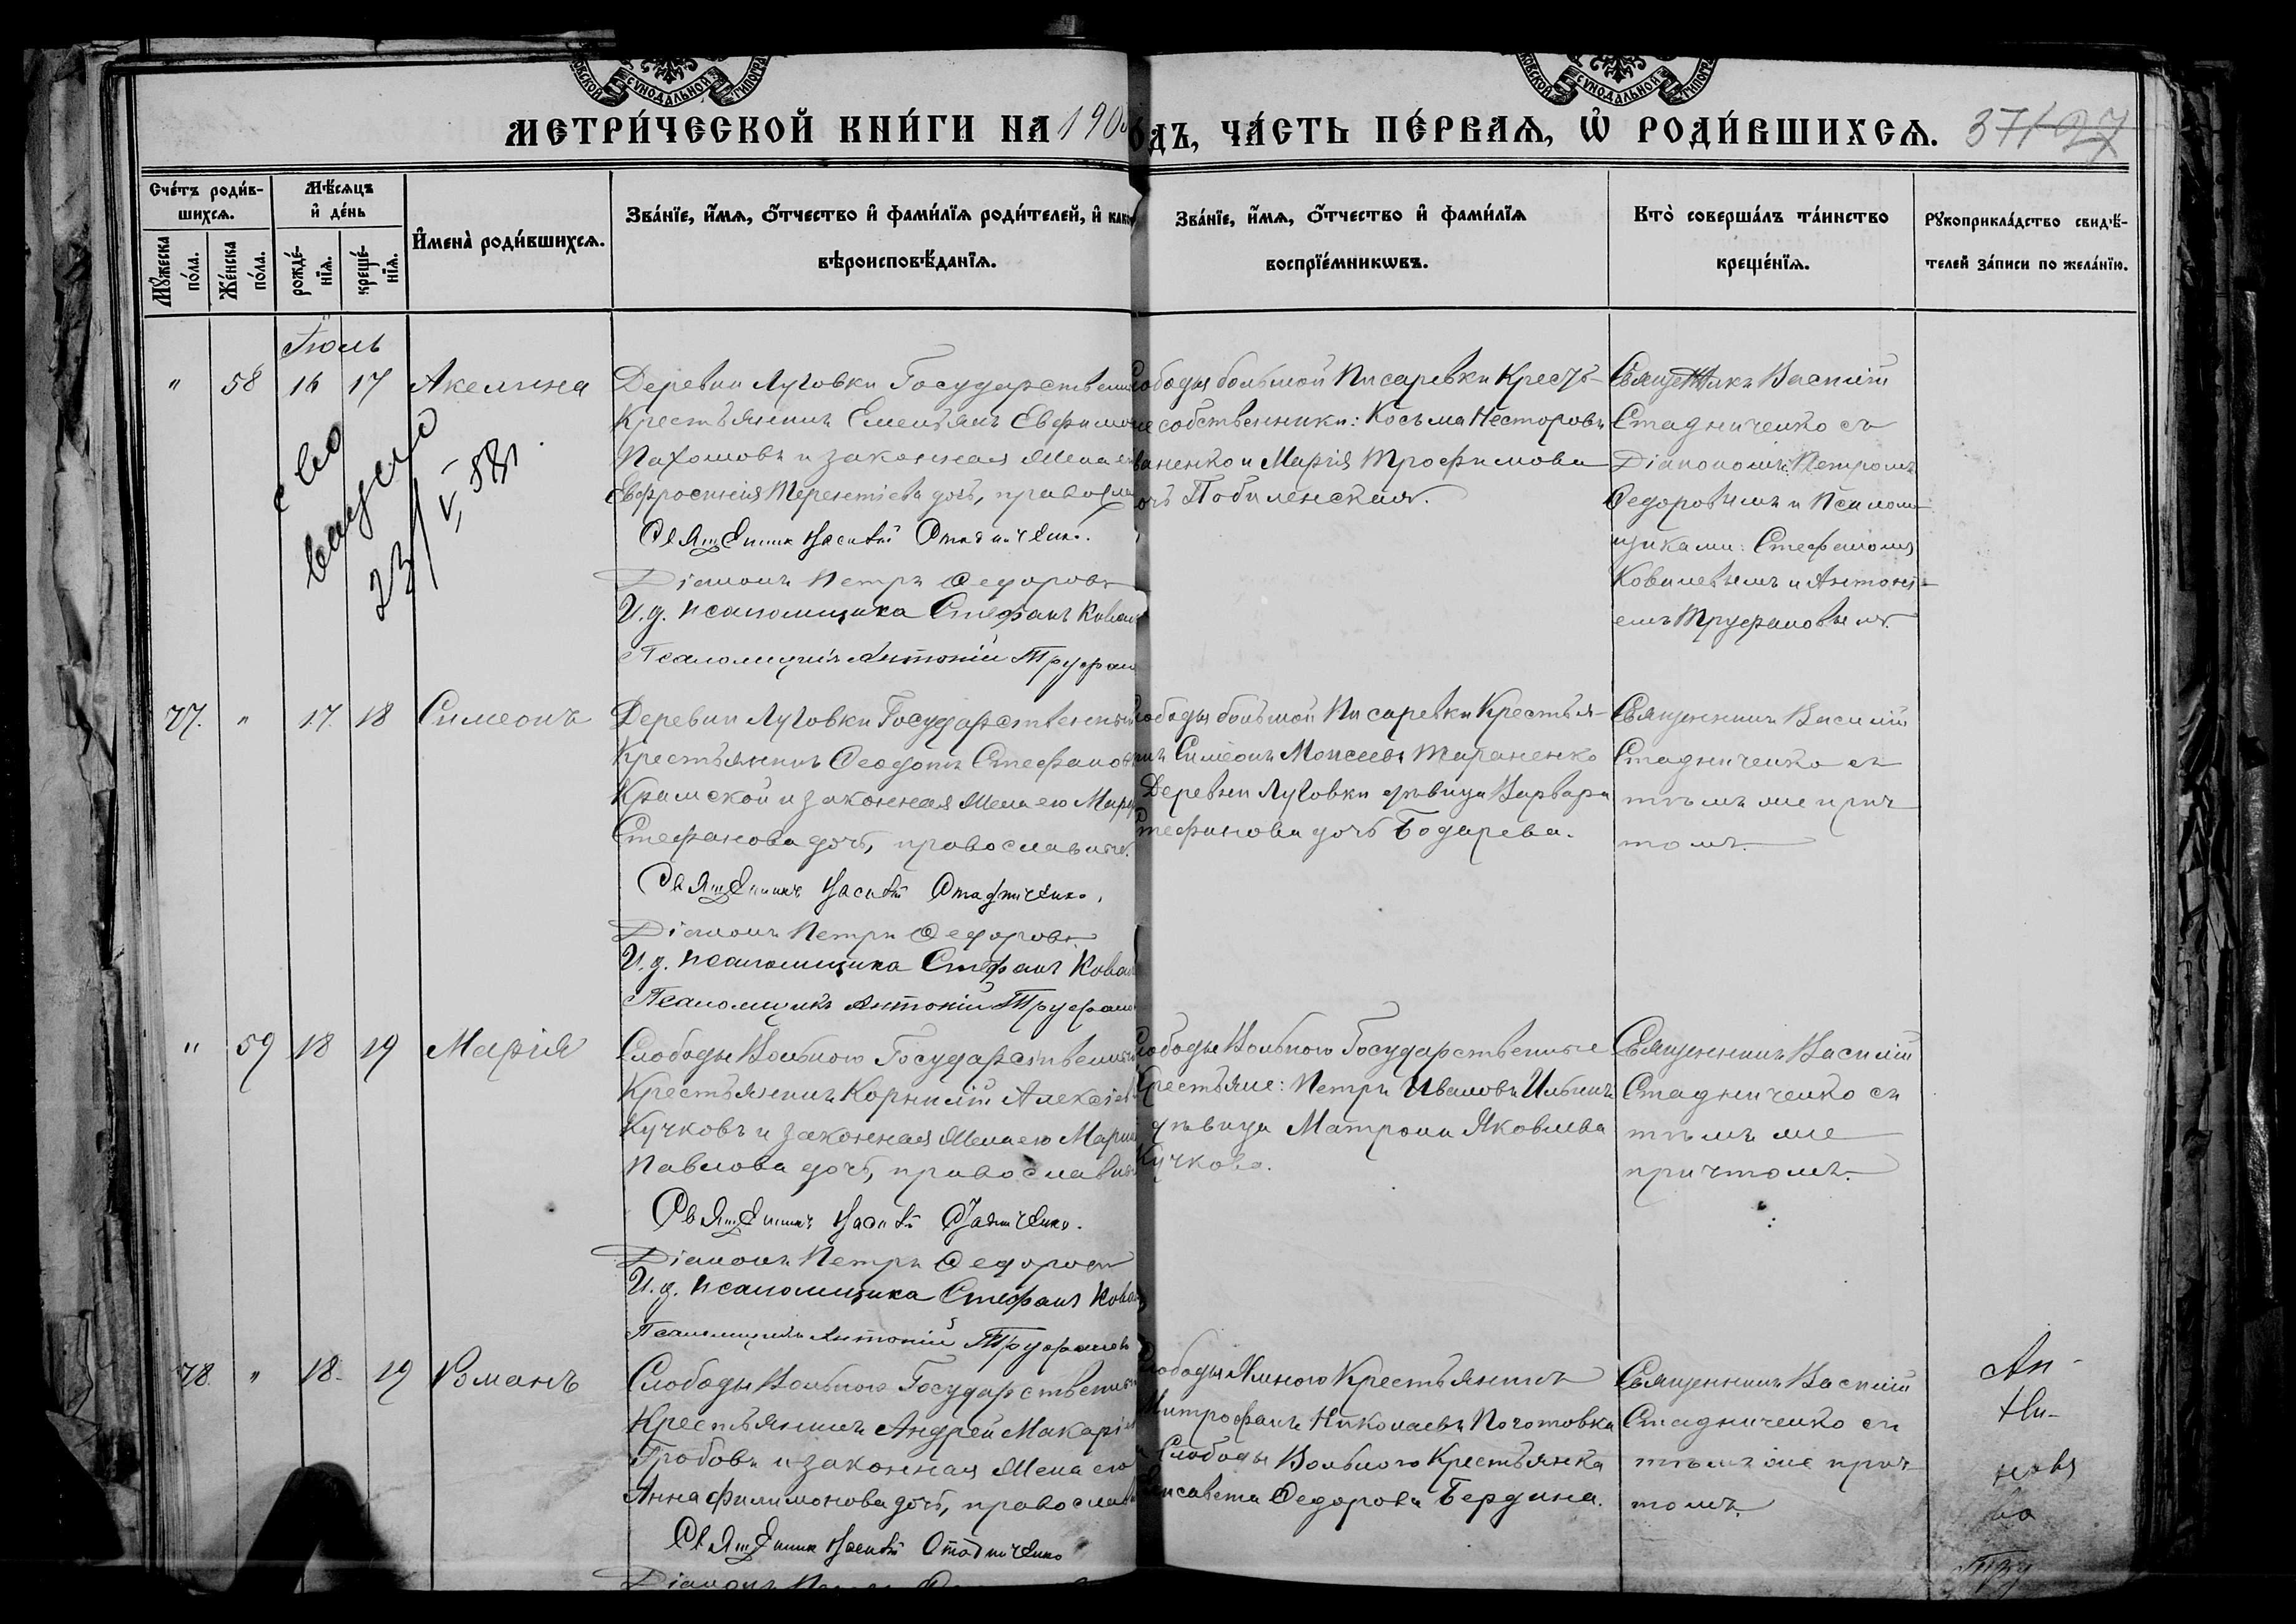 МЕТРИ́ЧЕСКОЙ КНИ́ГИ НА 190
ДЪ, ЧА́СТЬ ПЕ́РВАѦ, Ѡ҆ РОДИ́ВШИХСѦ.
37
27
Сче́тъ роди́в-
шихсѧ.
Мѣ́сѧцъ
и҆ де́нь
Мꙋ́жеска
по́ла.
Же́нска
по́ла.
рожде́-
нїѧ.
креще́-
нїѧ.
И҆мена̀ роди́вшихсѧ.
Зва́нїе, и҆́мѧ, ѻ҆́тчество и҆ фами́лїѧ роди́телей, и҆ как
вѣроисповѣ́данїѧ.
Зва́нїе, и҆́мѧ, ѻ҆́тчество и҆ фами́лїѧ
воспрїе́мникѡвъ.
Кто̀ соверша́лъ та́инство
креще́нїѧ.
Рꙋкоприкла́дство свидѣ́-
телей за́писи по жела́нїю.
Іюль
" 58 16 17 Акелина
Деревни Луговки Государствен
Крестьянинъ Емельянъ Евфимо
Пахомовъ и законная жена е
Евфросинія Терентіева дочь, правосла
Священникъ Василій Стадниченко.
Діаконъ Петръ Ѳедоровъ
И. д. псаломщика Стефанъ Ковал
Псаломщикъ Антоній Труфан
лободы большой Писаревки Кресть-
не собственники: Косьма Несторовъ
ваненко и Марія Трофимова
очь Побиленская.
Священникъ Василій
Стадниченко съ
Діакономъ Петромъ
Ѳедоровымъ и Псалом-
щиками: Стефаномъ
Ковалевымъ и Антоні-
емъ Труфановымъ.
77. " 17 18 Симеонъ
Деревни Луговки Государственный
Крестьянинъ Ѳеодотъ Стефанов
Крамской и законная жена его Мар
Стефанова дочь, православные.
Священникъ Василій Стадниченко.
Діаконъ Петръ Ѳедоровъ
И. д. псаломщика Стефанъ Ковал
Псаломщикъ Антоній Труфан
лободы большой Писаревки Крестья-
нъ Симеонъ Моисеевъ Тараненко
Деревни Луговки дѣвица Варвара
Стефанова дочь Бодарева.
Священникъ Василій
Стадниченко съ
тѣмъ же прич
томъ.
" 59 18 19 Марія
Слободы Вольного Государствен
Крестьянинъ Корнилій Алексіев
Кучковъ и законная жена его Марі
Павлова дочь, православн
Священникъ Василій Стадниченко.
Діаконъ Петръ Ѳедоровъ
И. д. псаломщика Стефанъ Ковал
Псаломщикъ Антоній Труфанов
лободы Вольного Государственные
Крестьяне: Петръ Ивановъ Ильинъ
дѣвица Матрона Яковлева
Кучкова.
Священникъ Василій
Стадниченко съ
тѣмъ же
причтомъ.
78. " 18. 19 Романъ
Слободы Вольного Государственн
Крестьянинъ Андрей Макарі
Гробовъ и законная жена его
Анна Филимонова дочь, православ
Священникъ Василій Стадниченко
Діаконъ Петръ
лободы Ямного Крестьянинъ
Митрофанъ Николаевъ Поготовка
и Слободы Вольного Крестьянка
Елисавета Ѳедорова Бердина.
Священникъ Василій
Стадниченко съ
тѣмъ же прич
томъ.